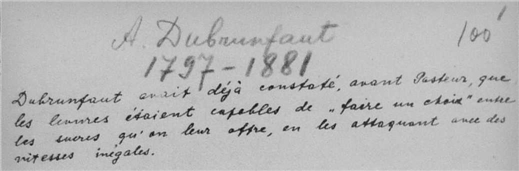 A. Dubrunfaut
100
1797-1881
Dubrunfaut avait déjà constaté, avant Pasteur, que
les levures étaient capables de „faire un choix" entre
les sucres qu'on leur offre, en les attaquant avec des
vitesses inégales.